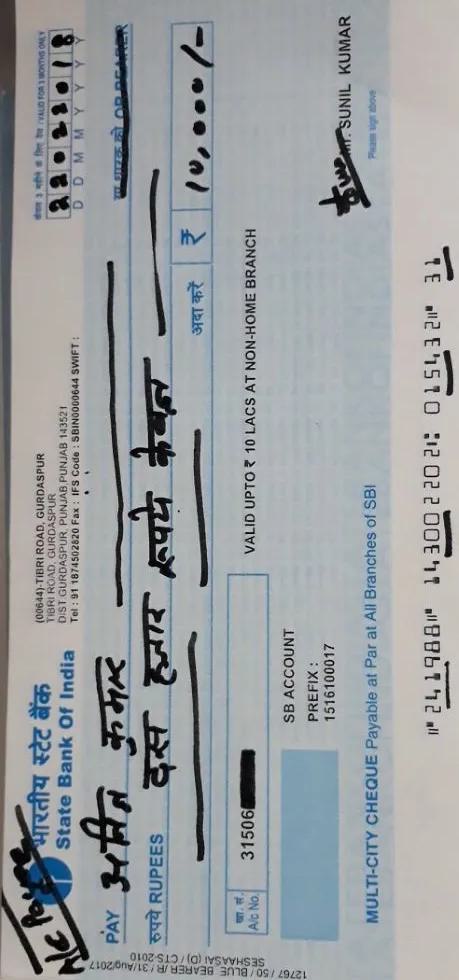 A/C Payee
भारतीय स्टेट बैंक
State Bank Of India
(00644)-TIBRI ROAD, GURDASPUR
TIBRI ROAD, GURDASPUR
DIST GURDASPUR, PUNJAB,PUNJAB 143521
Tel : 91 1874502820 Fax : IFS Code : SBIN0000644 SWIFT :
केवल 3 महीने के लिए वैध / VALID FOR 3 MONTHS ONLY
22022018
D D M M Y Y Y Y
PAY अमित कुमार या धारक को OR BEARER
रुपये RUPEES दस हजार रूपये केवल
अदा करें ₹ 10,000/-
खा. सं. A/c No. 31506
VALID UPTO ₹ 10 LACS AT NON-HOME BRANCH
SB ACCOUNT
PREFIX :
1516100017
SUNIL KUMAR
Please sign above
MULTI-CITY CHEQUE Payable at Par at All Branches of SBI
⑈241988⑈ 143002202⑆ 015432⑈ 31
SESHAASAI (D) / CTS-2010
12767 / 50 / BLUE BEARER /R / 31/Aug/2017